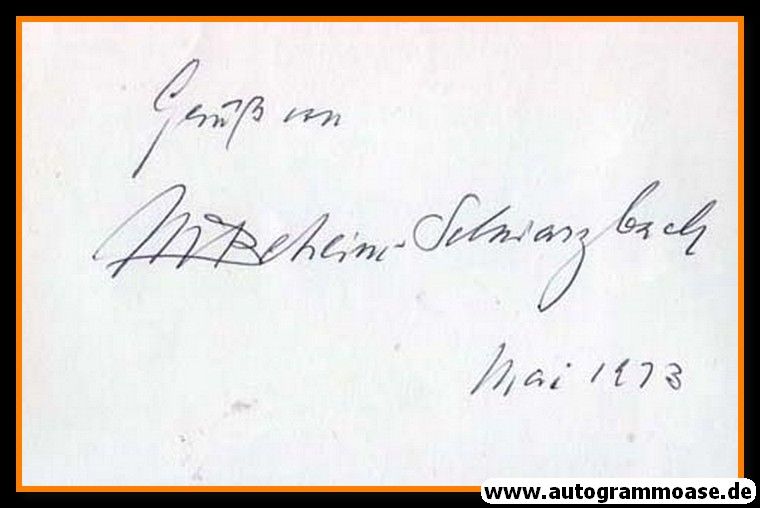 Gruß von
M Beheim-Schwarzbach
Mai 1973
www.autogrammoase.de